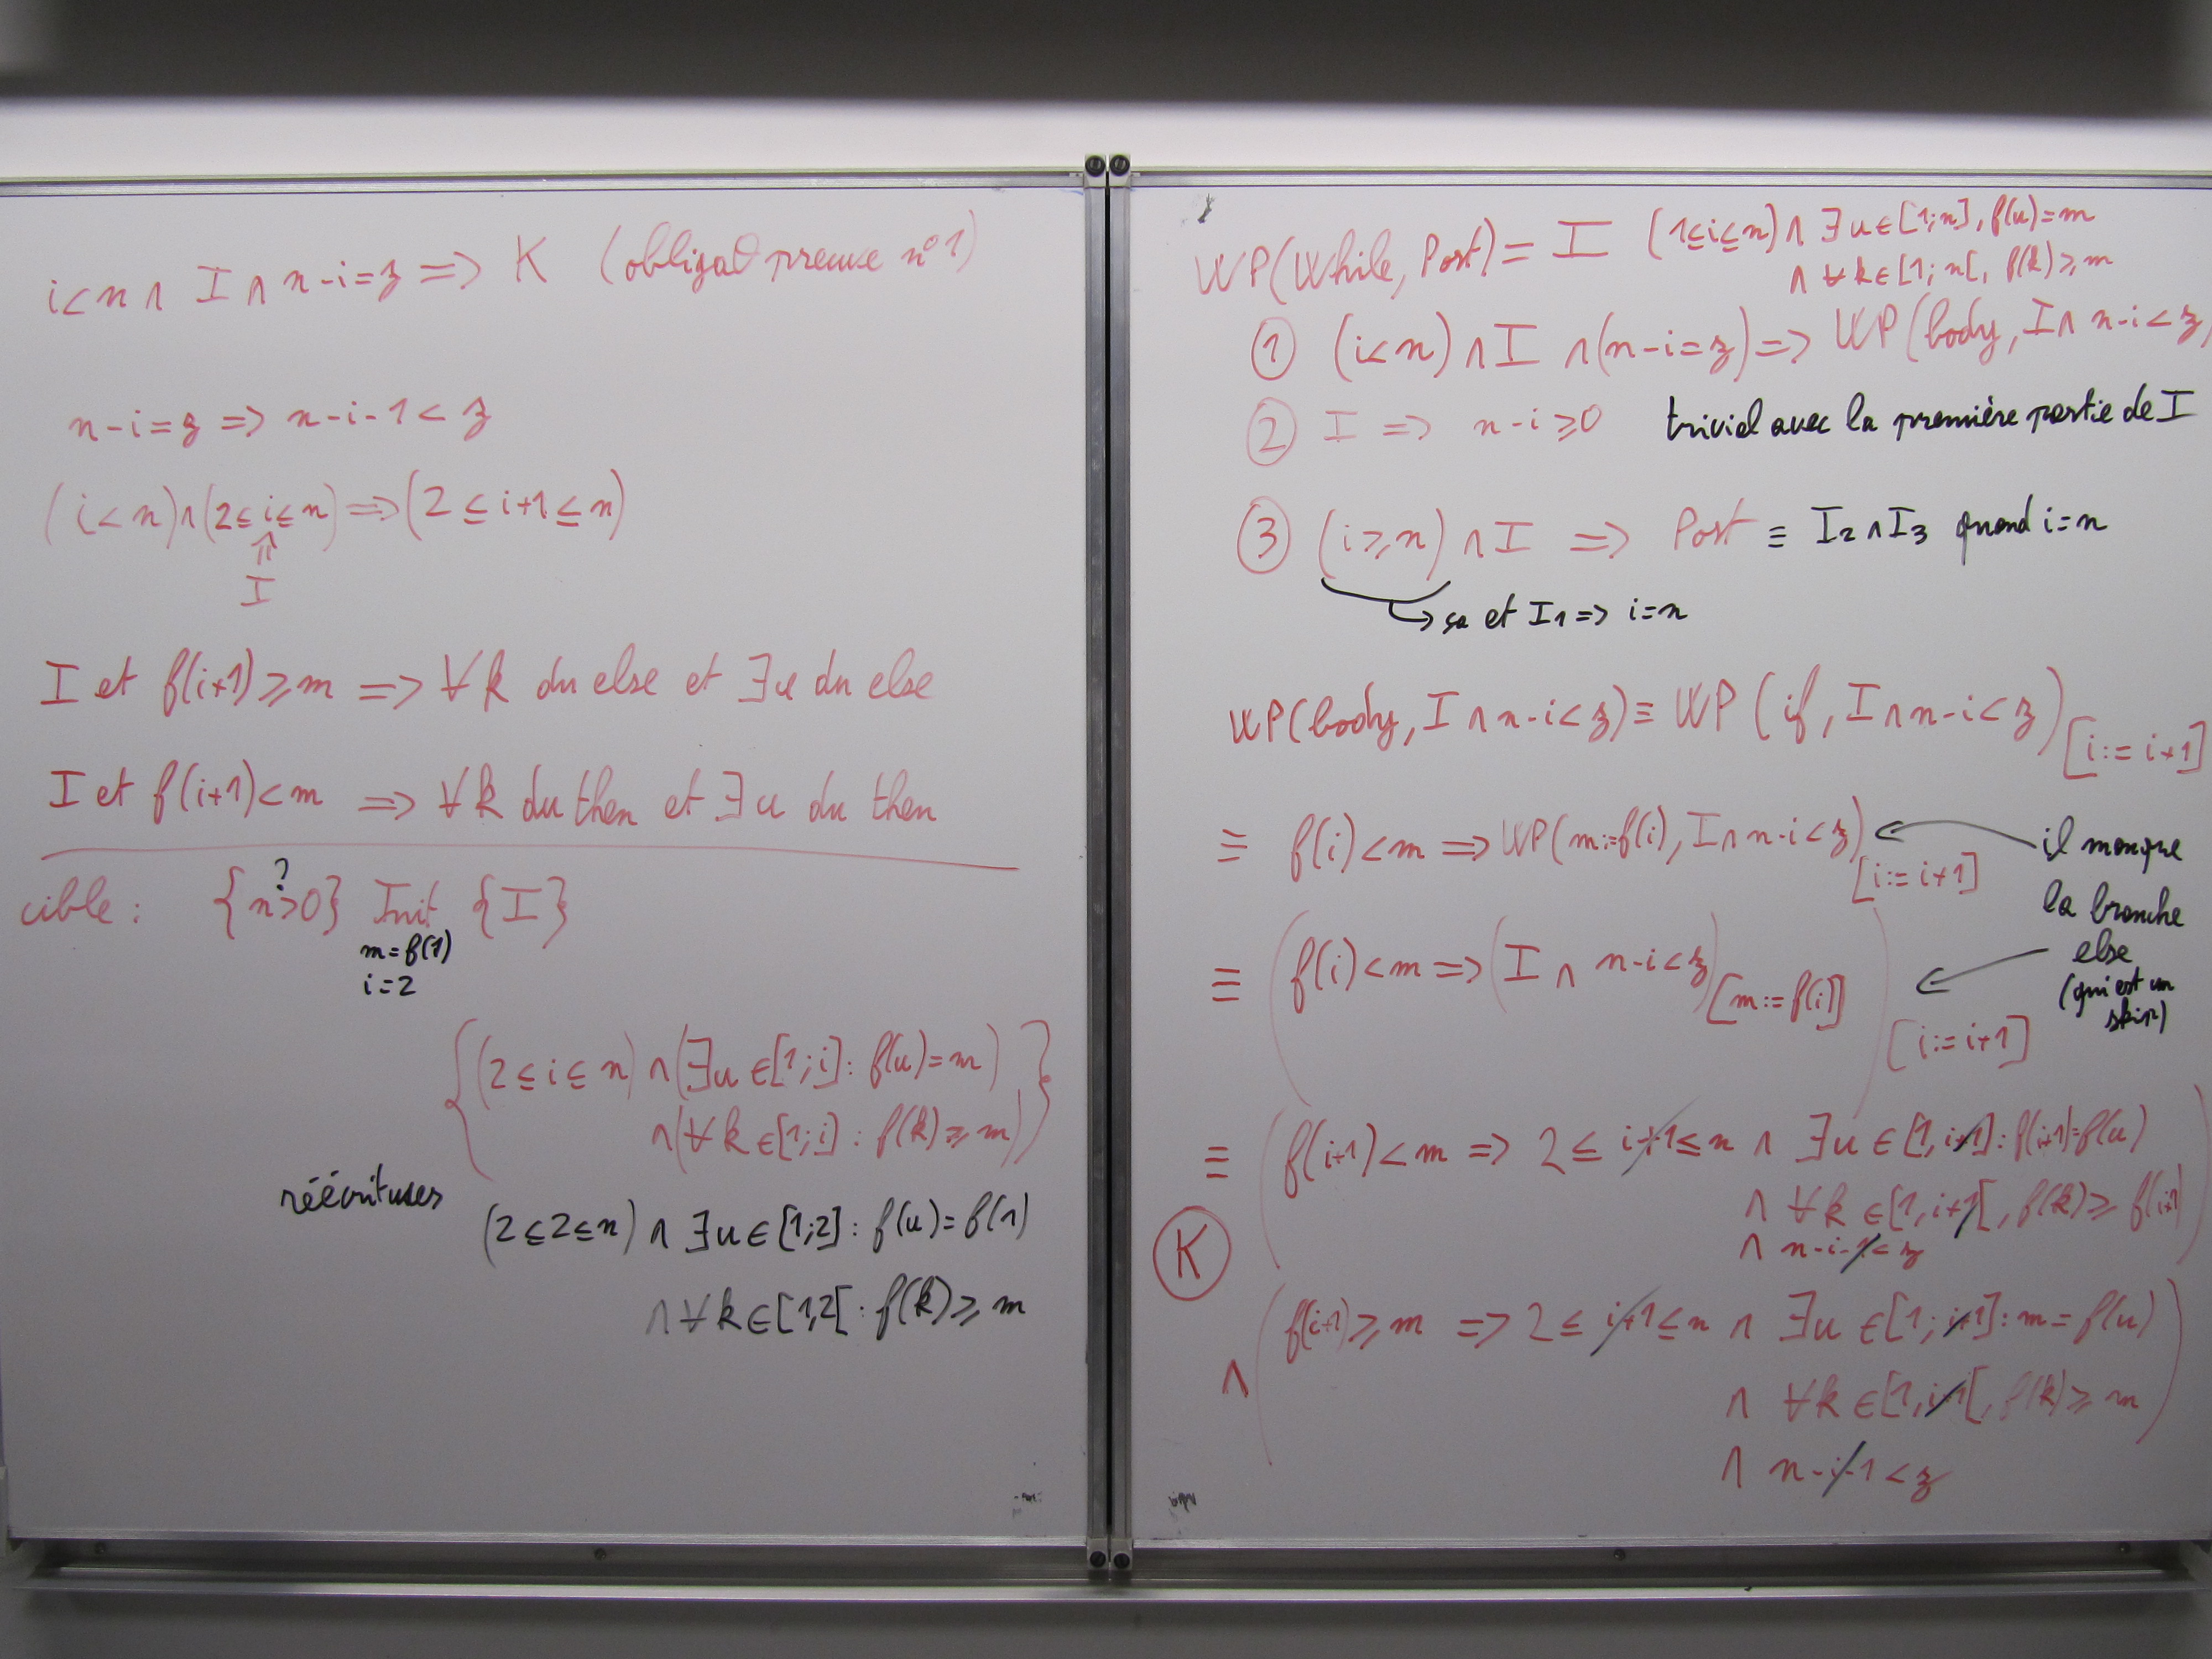 i<n ∧ I ∧ n-i=z => K (obligat° preuve n°1)
n-i=z => n-i-1<z
(i<n)∧(2≤i≤n) => (2≤i+1≤n)
⇑
I
I et f(i+1)≥m => ∀k du else et ∃u du else
I et f(i+1)<m => ∀k du then et ∃u du then
cible : {n>0} Init {I}
?
m=f(1)
i=2
{(2≤i≤n) ∧(∃u∈[1;i]: f(u)=m)
∧(∀k∈[1;i[ : f(k)≥m)}
réécritures
(2≤2≤n) ∧ ∃u∈[1;2]: f(u)=f(1)
∧∀k∈[1,2[ : f(k)≥m
WP(While, Post)= I (1≤i≤n)∧ ∃u∈[1;n], f(u)=m
∧ ∀k∈[1;n[, f(k)≥m
① (i<n) ∧ I ∧(n-i=z)=> WP(body, I∧ n-i<z)
② I => n-i≥0 trivial avec la première partie de I
③ (i≥n) ∧ I => Post ≡ I2∧I3 quand i=n
↳ ça et I1 => i=n
WP(body, I∧n-i<z)≡ WP(if, I∧n-i<z)[i:=i+1]
≡ f(i)<m => WP(m:=f(i), I∧n-i<z)[i:=i+1]
il manque
la branche
else
(qui est un
skip)
≡ (f(i)<m => (I ∧ n-i<z)[m:=f(i)])[i:=i+1]
≡ (f(i+1)<m => 2≤i+1≤n ∧ ∃u∈[1,i+1]: f(i+1)=f(u)
∧ ∀k∈[1,i+1[, f(k)≥f(i+1)
∧ n-i-1<z)
K
∧ (f(i+1)≥m => 2≤i+1≤n ∧ ∃u∈[1;i+1]: m=f(u)
∧ ∀k∈[1,i+1[, f(k)≥m)
∧ n-i-1<z